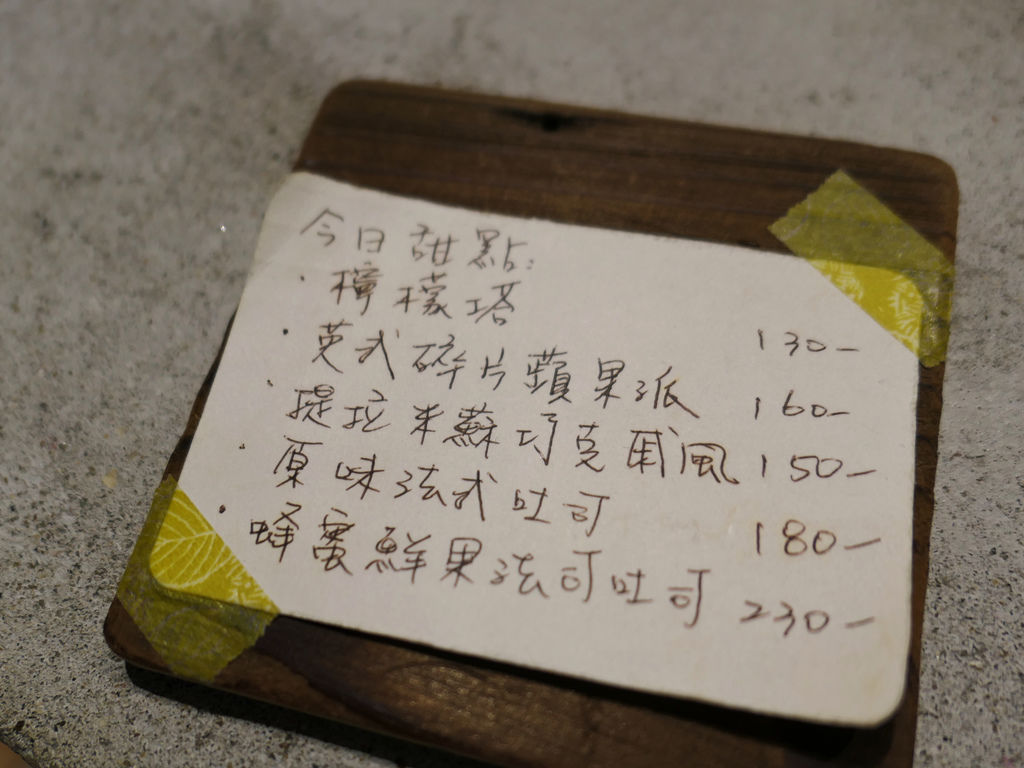 今日甜點:
· 檸檬塔 130-
· 英式碎片蘋果派 160-
· 提拉米蘇巧克風 150-
· 原味法式吐司 180-
· 蜂蜜鮮果法司吐司 230-